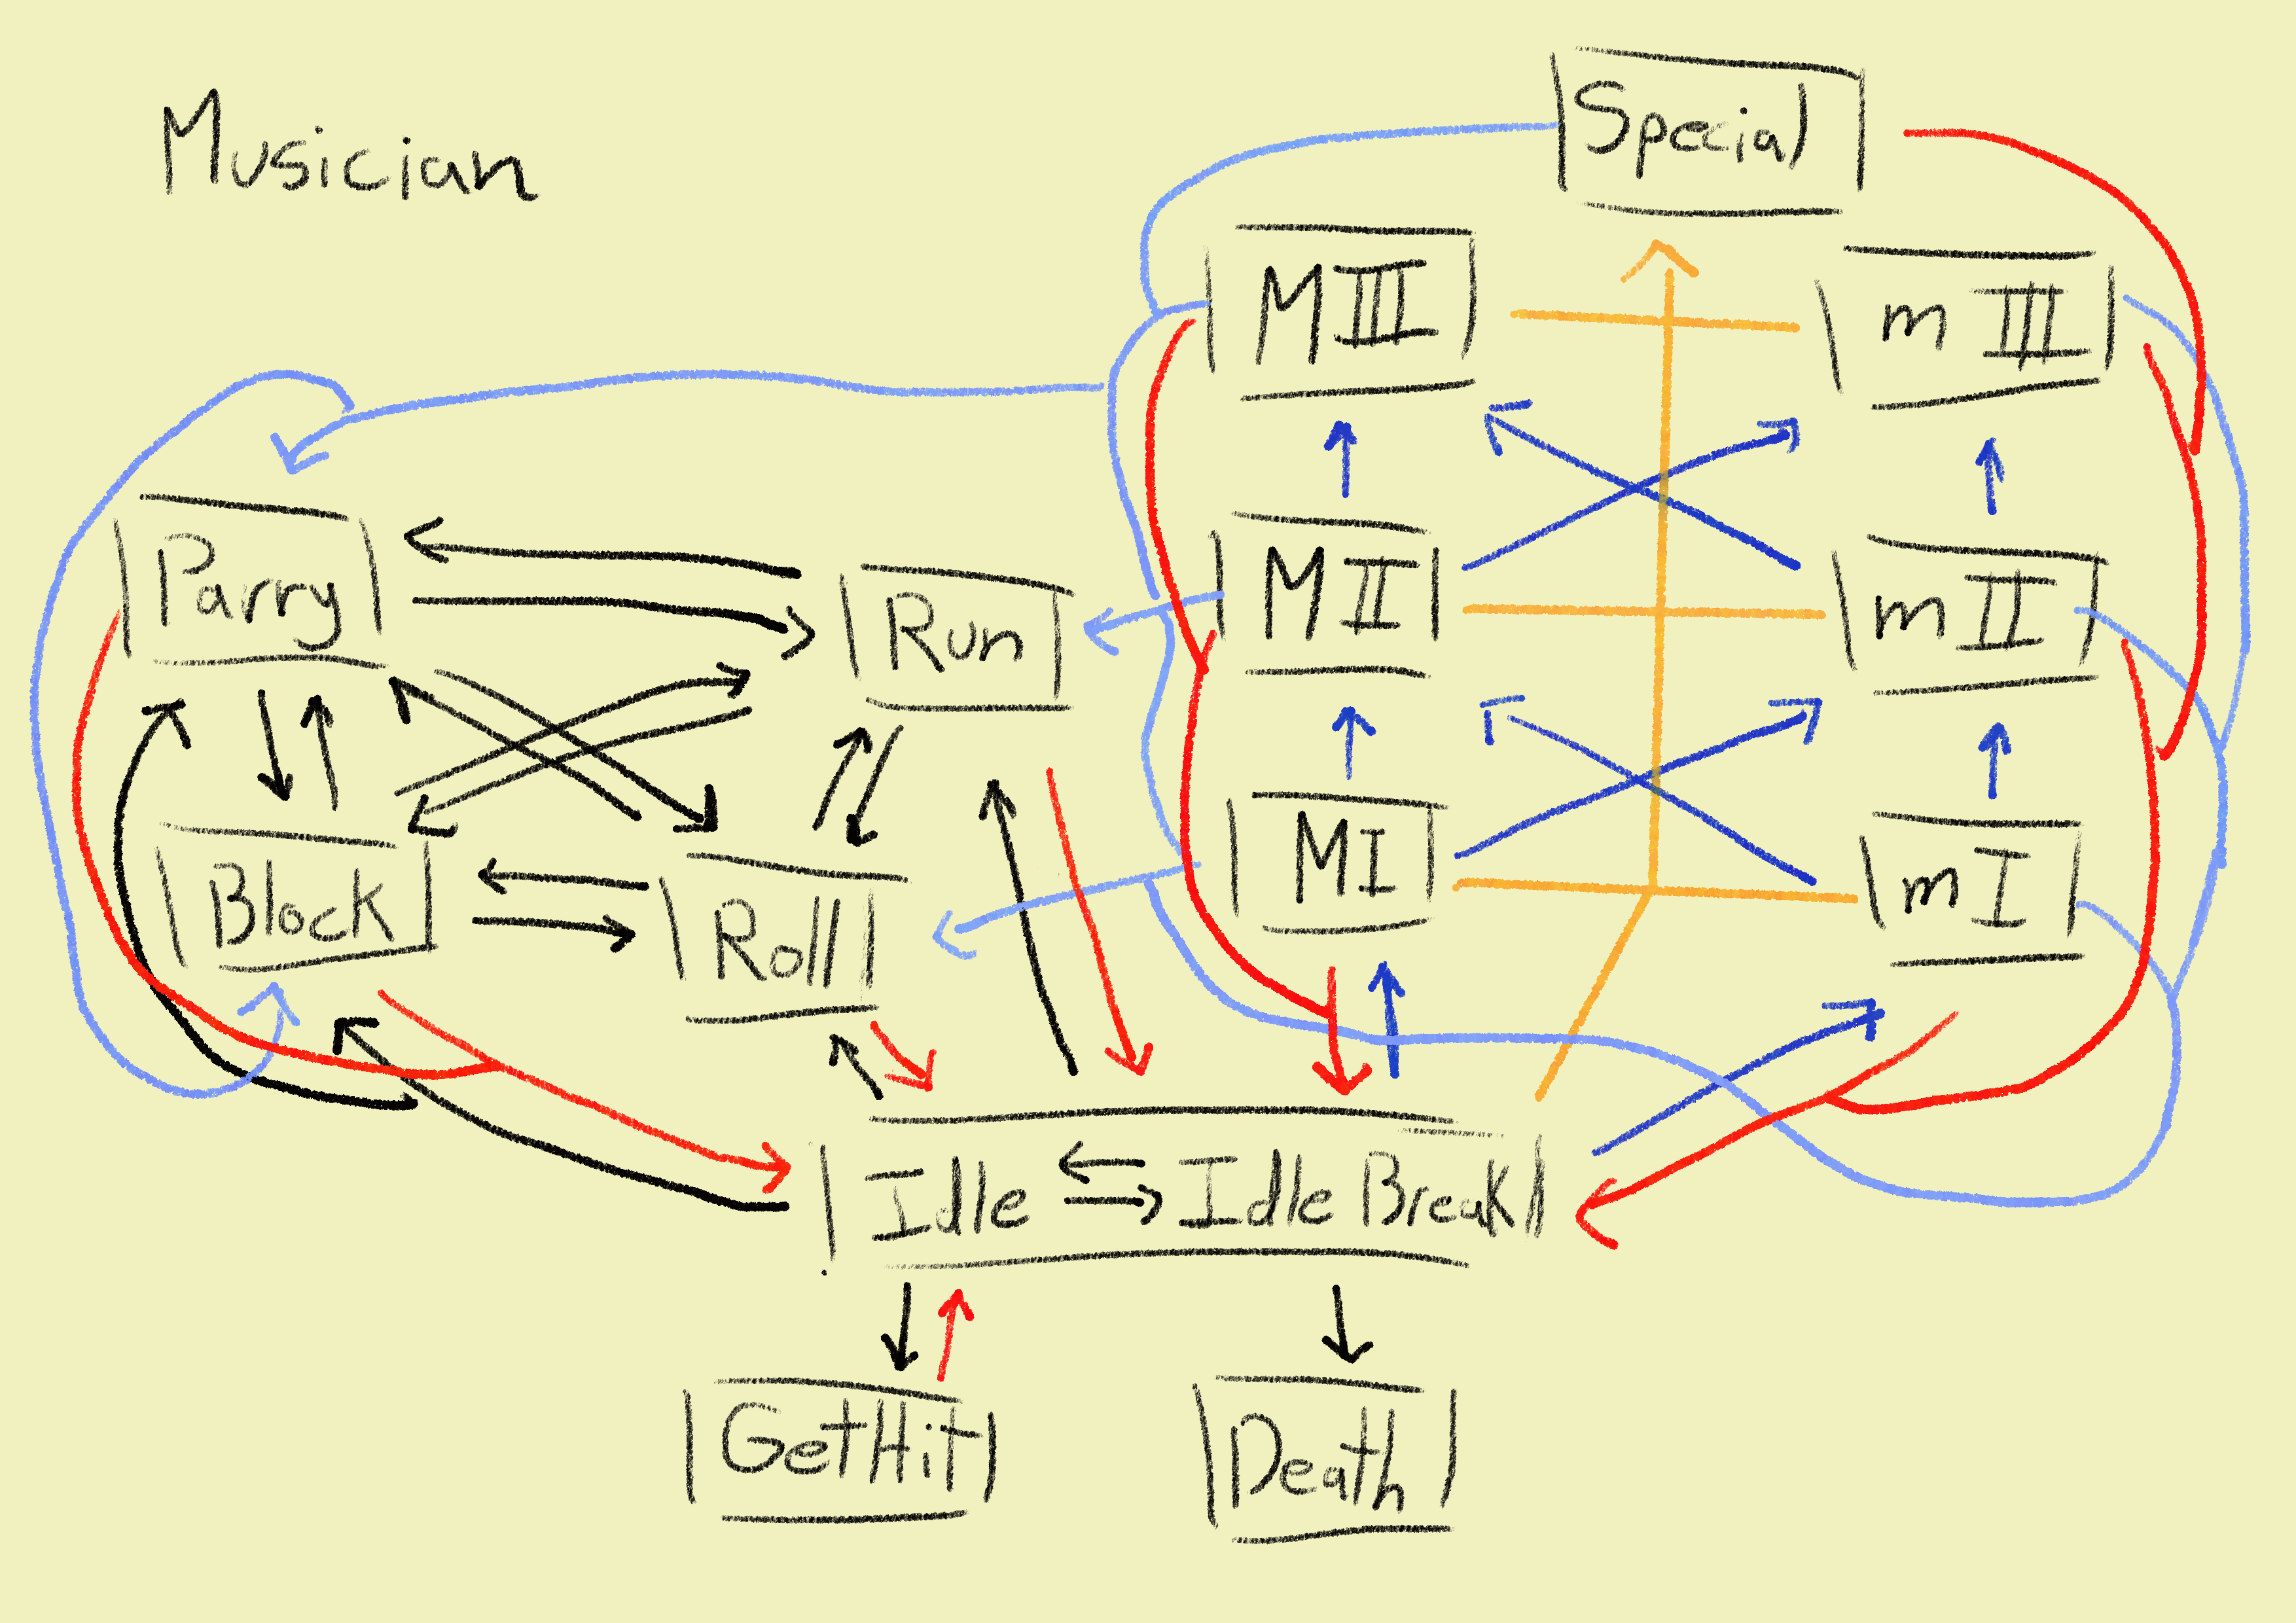 Musician
Special
MIII
m III
Parry
Run
MII
mII
Block
Roll
MI
mI
Idle
Idle Break
GetHit
Death